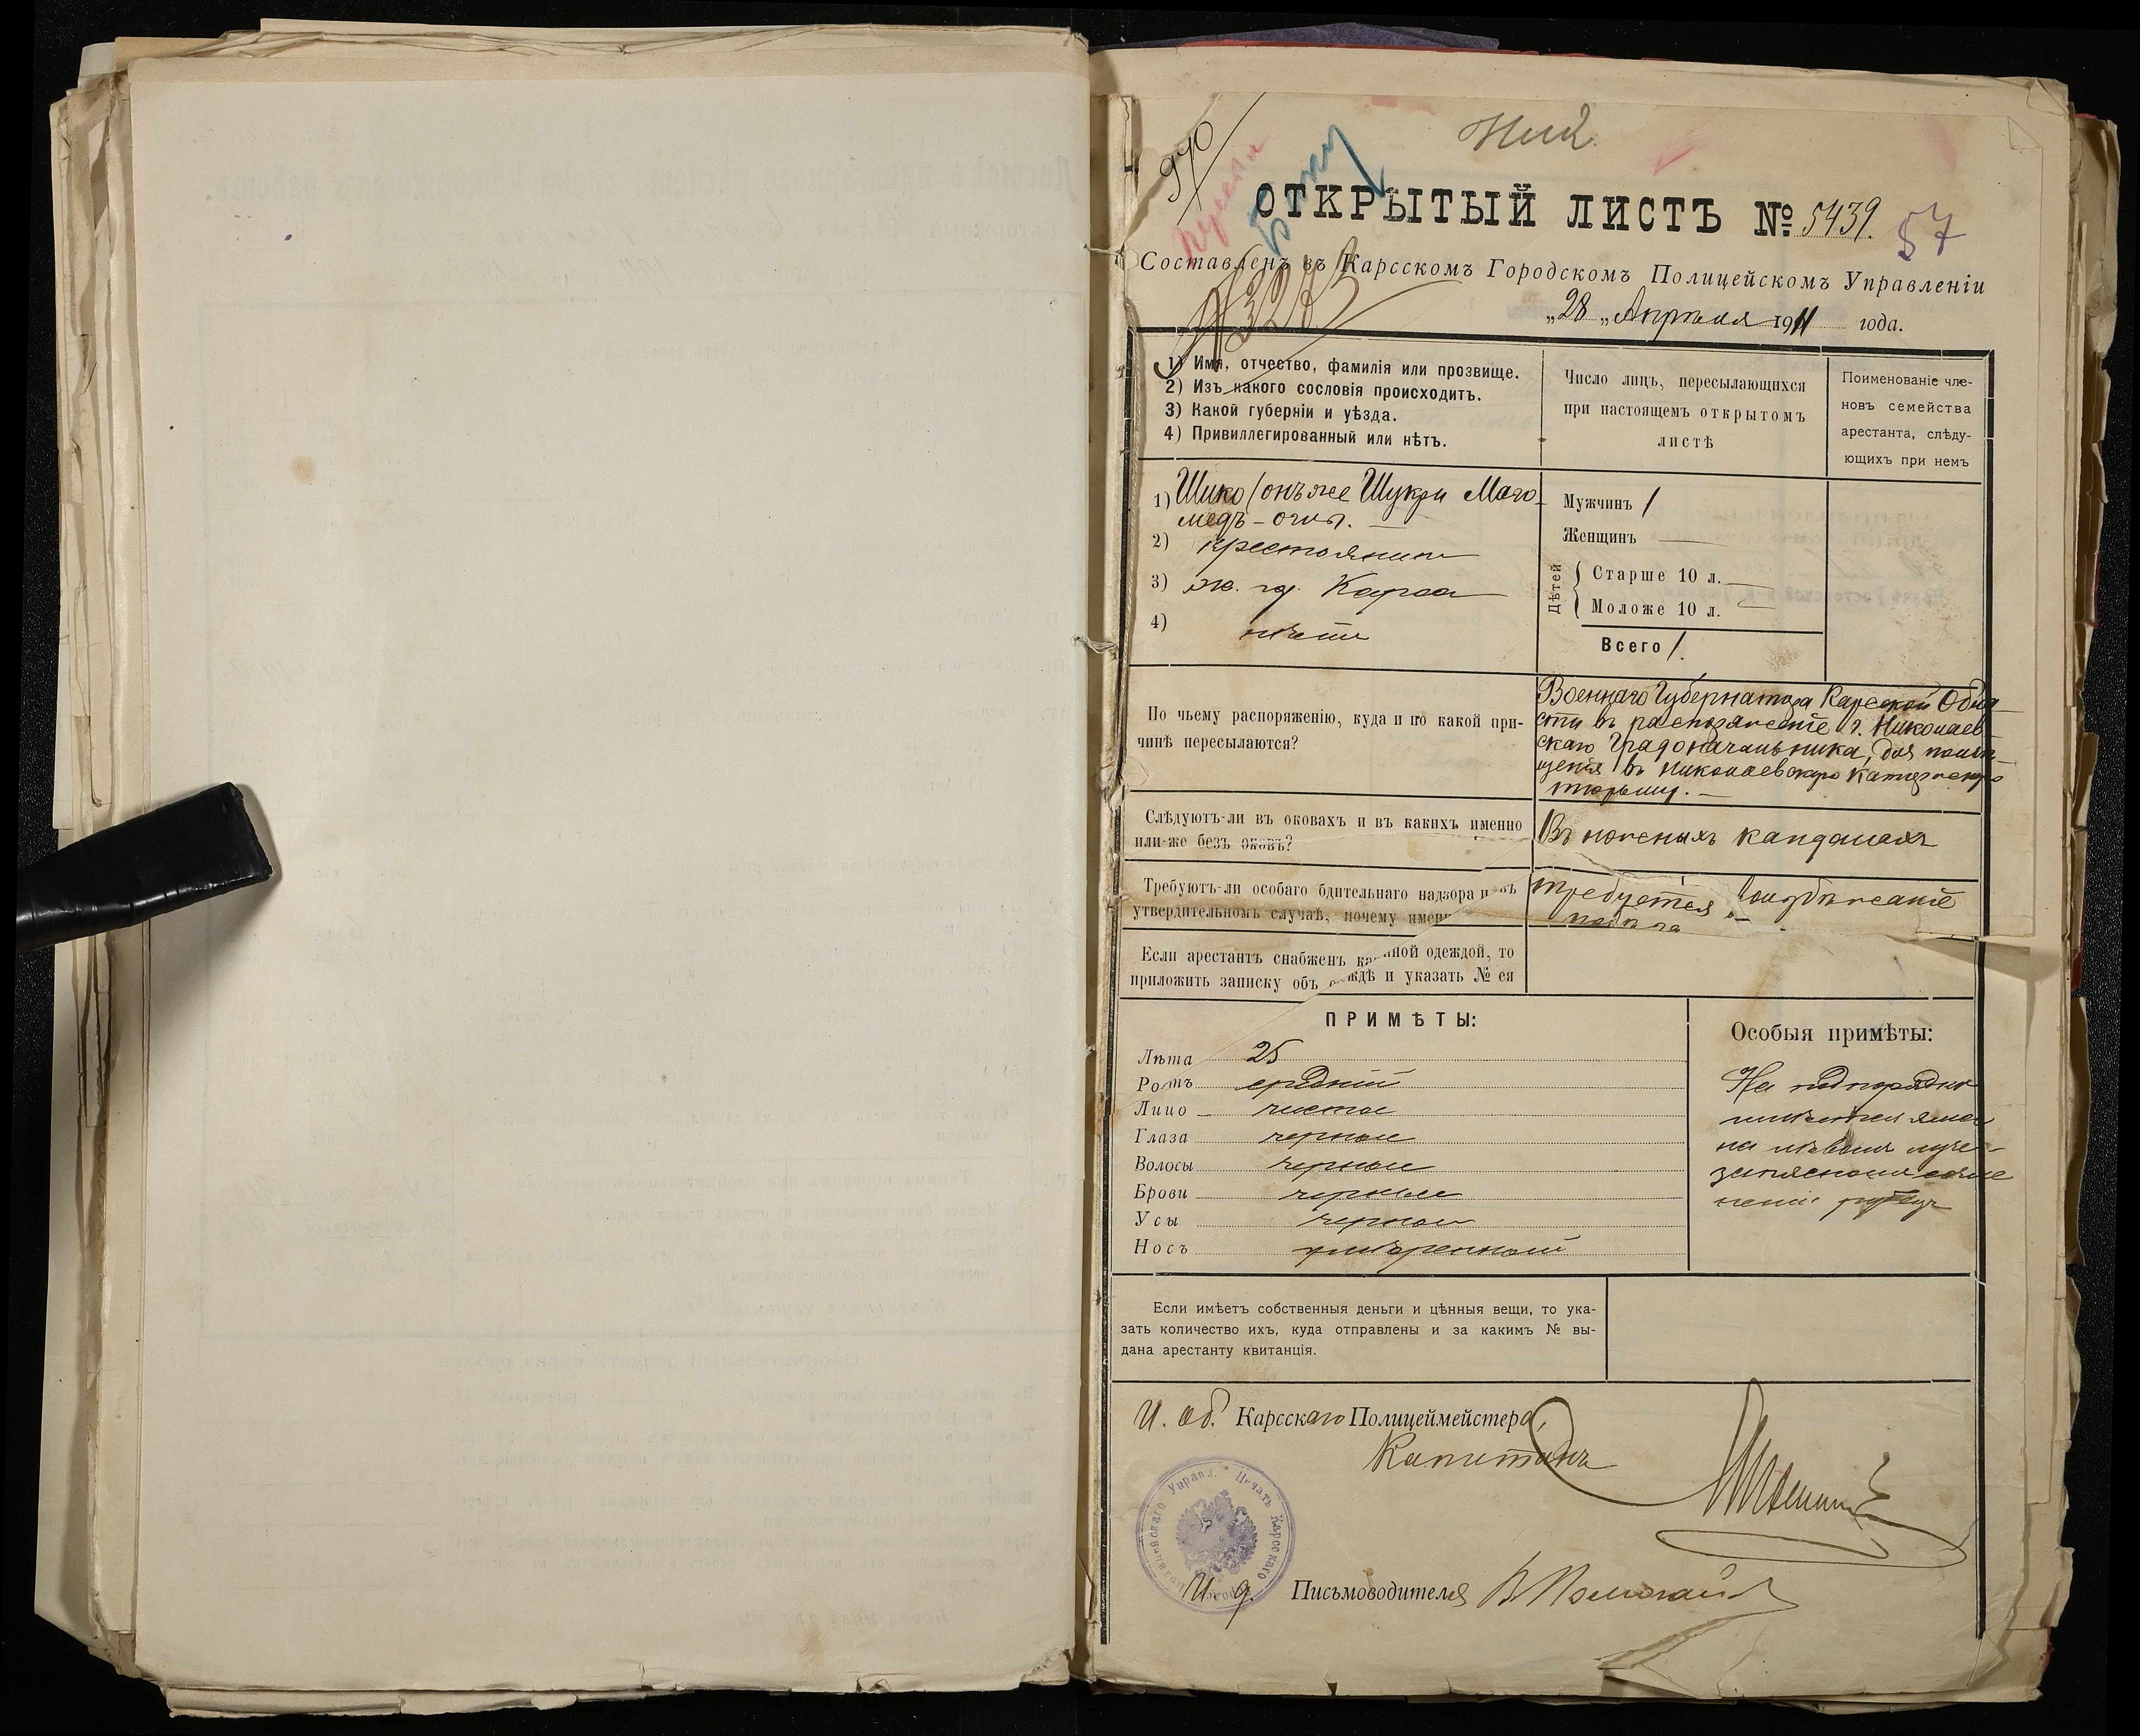 970
ОТКРЫТЫЙ ЛИСТЪ № 5439. 57
Составленъ въ Карсскомъ Городскомъ Полицейскомъ Управленіи
„28„ Апрѣля 1911 года.
1) Имя, отчество, фамилія или прозвище.
2) Изъ какого сословія происходитъ.
3) Какой губерніи и уѣзда.
4) Привиллегированный или нѣтъ.
Число лицъ, пересылающихся
при настоящемъ открытомъ
листѣ
Поименованіе чле-
новъ семейства
арестанта, слѣду-
ющихъ при немъ
1) Шико (онъ же Шукри Маго-
медъ-оглы.
2) крестьянинъ
3) ж. гор. Карса
4) нѣтъ
Мужчинъ 1
Женщинъ
Дѣтей
Старше 10 л.
Моложе 10 л.
Всего 1.
По чьему распоряженію, куда и по какой при-
чинѣ пересылаются?
Военнаго Губернатора Карсской Обла-
сти въ распоряженіе г. Николаев-
скаго Градоначальника, для помѣ-
щенія въ Николаевскую каторжную
тюрьму.
Слѣдуютъ-ли въ оковахъ и въ какихъ именно
или-же безъ оковъ?
Въ ножныхъ кандалахъ
Требуютъ-ли особаго бдительнаго надзора и въ
утвердительномъ случаѣ, почему имен
требуется, во избѣжаніе
побѣга
Если арестантъ снабженъ ка нной одеждой, то
приложить записку объ ждѣ и указать № ея
ПРИМѢТЫ:
Лѣта 25
Ростъ средній
Лицо чистое
Глаза черные
Волосы черные
Брови черные
Усы черные
Носъ умѣренный
Особыя примѣты:
На подбородкѣ
имѣется яма
на лѣвомъ луче-
запястномъ сочле
неніи рубецъ
Если имѣетъ собственныя деньги и цѣнныя вещи, то ука-
зать количество ихъ, куда отправлены и за какимъ № вы-
дана арестанту квитанція.
И. об. Карсскаго Полицеймейстера,
Капитанъ
Печать Карсскаго Полицейскаго Управл.
И. д. Письмоводителя